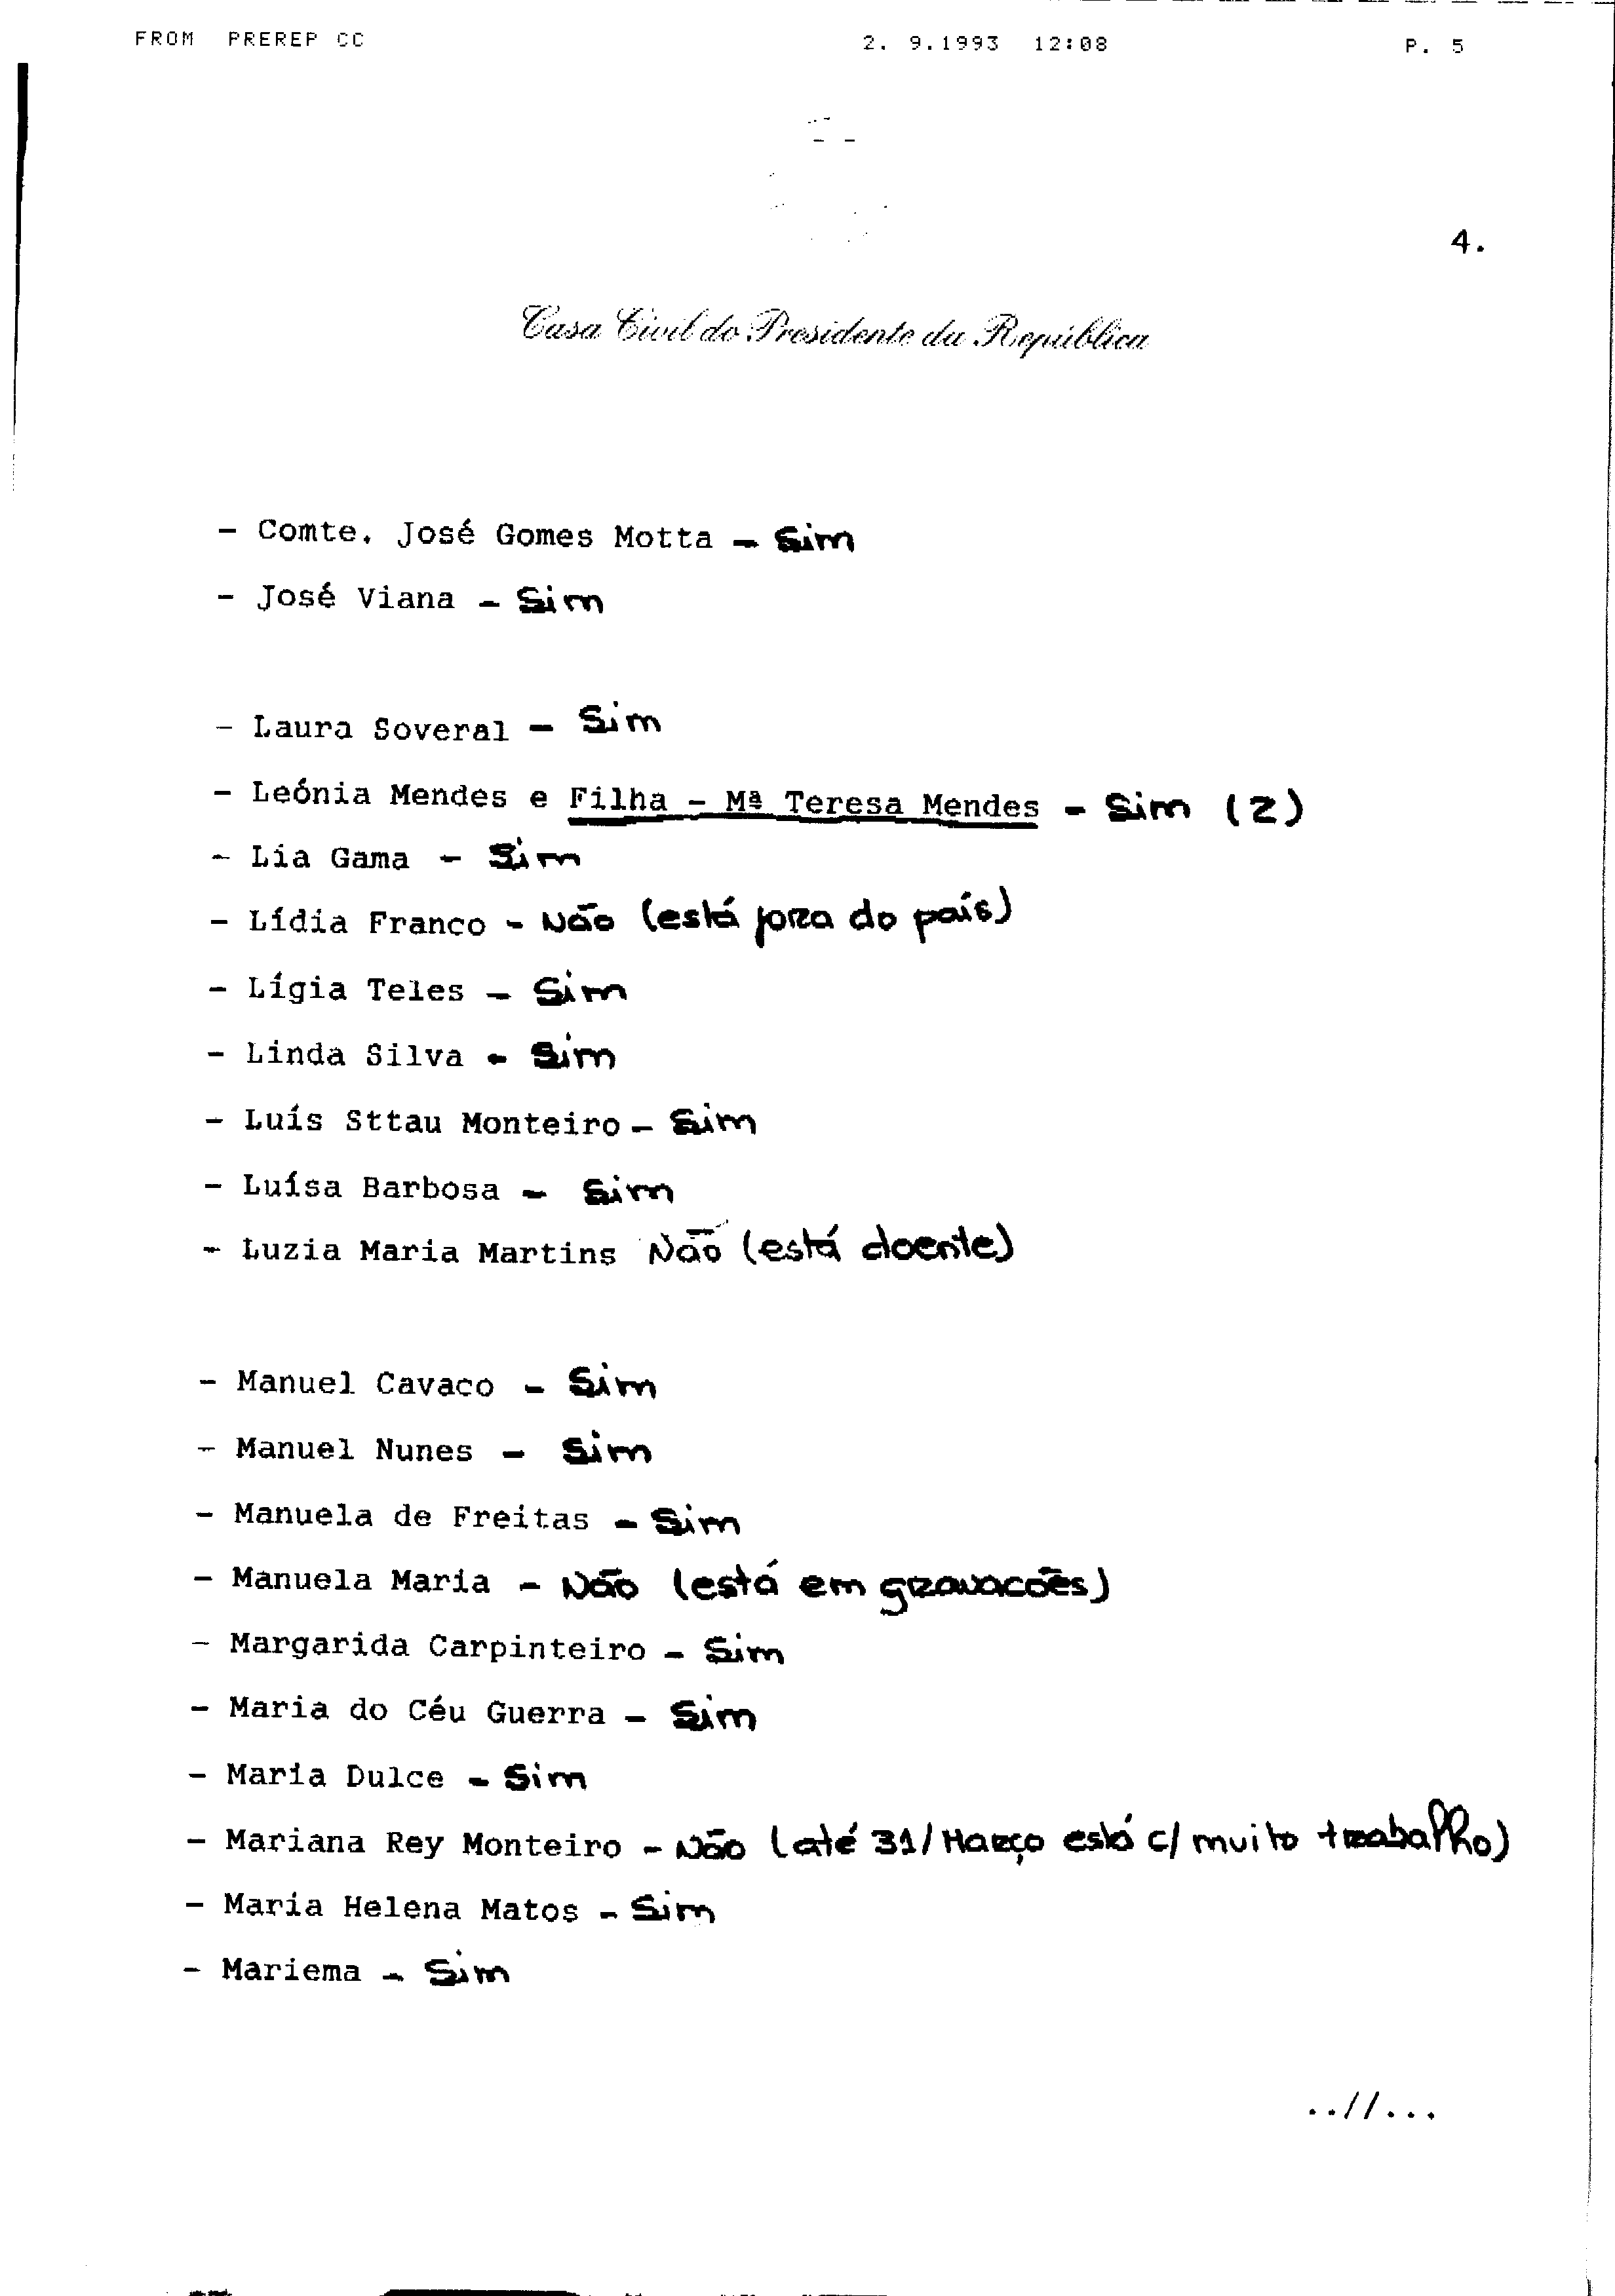 FROM PREREP CC 2. 9.1993 12:08 P. 5
4.
Casa Civil do Presidente da República
- Comte. José Gomes Motta - Sim
- José Viana - Sim
- Laura Soveral - Sim
- Leónia Mendes e Filha - Mª Teresa Mendes - Sim (2)
- Lia Gama - Sim
- Lídia Franco - Não (está fora do país)
- Lígia Teles - Sim
- Linda Silva - Sim
- Luís Sttau Monteiro - Sim
- Luísa Barbosa - Sim
- Luzia Maria Martins Não (está doente)
- Manuel Cavaco - Sim
- Manuel Nunes - Sim
- Manuela de Freitas - Sim
- Manuela Maria - Não (está em gravacões)
- Margarida Carpinteiro - Sim
- Maria do Céu Guerra - Sim
- Maria Dulce - Sim
- Mariana Rey Monteiro - Não (até 31/Março está c/ muito trabalho)
- Maria Helena Matos - Sim
- Mariema - Sim
..//...